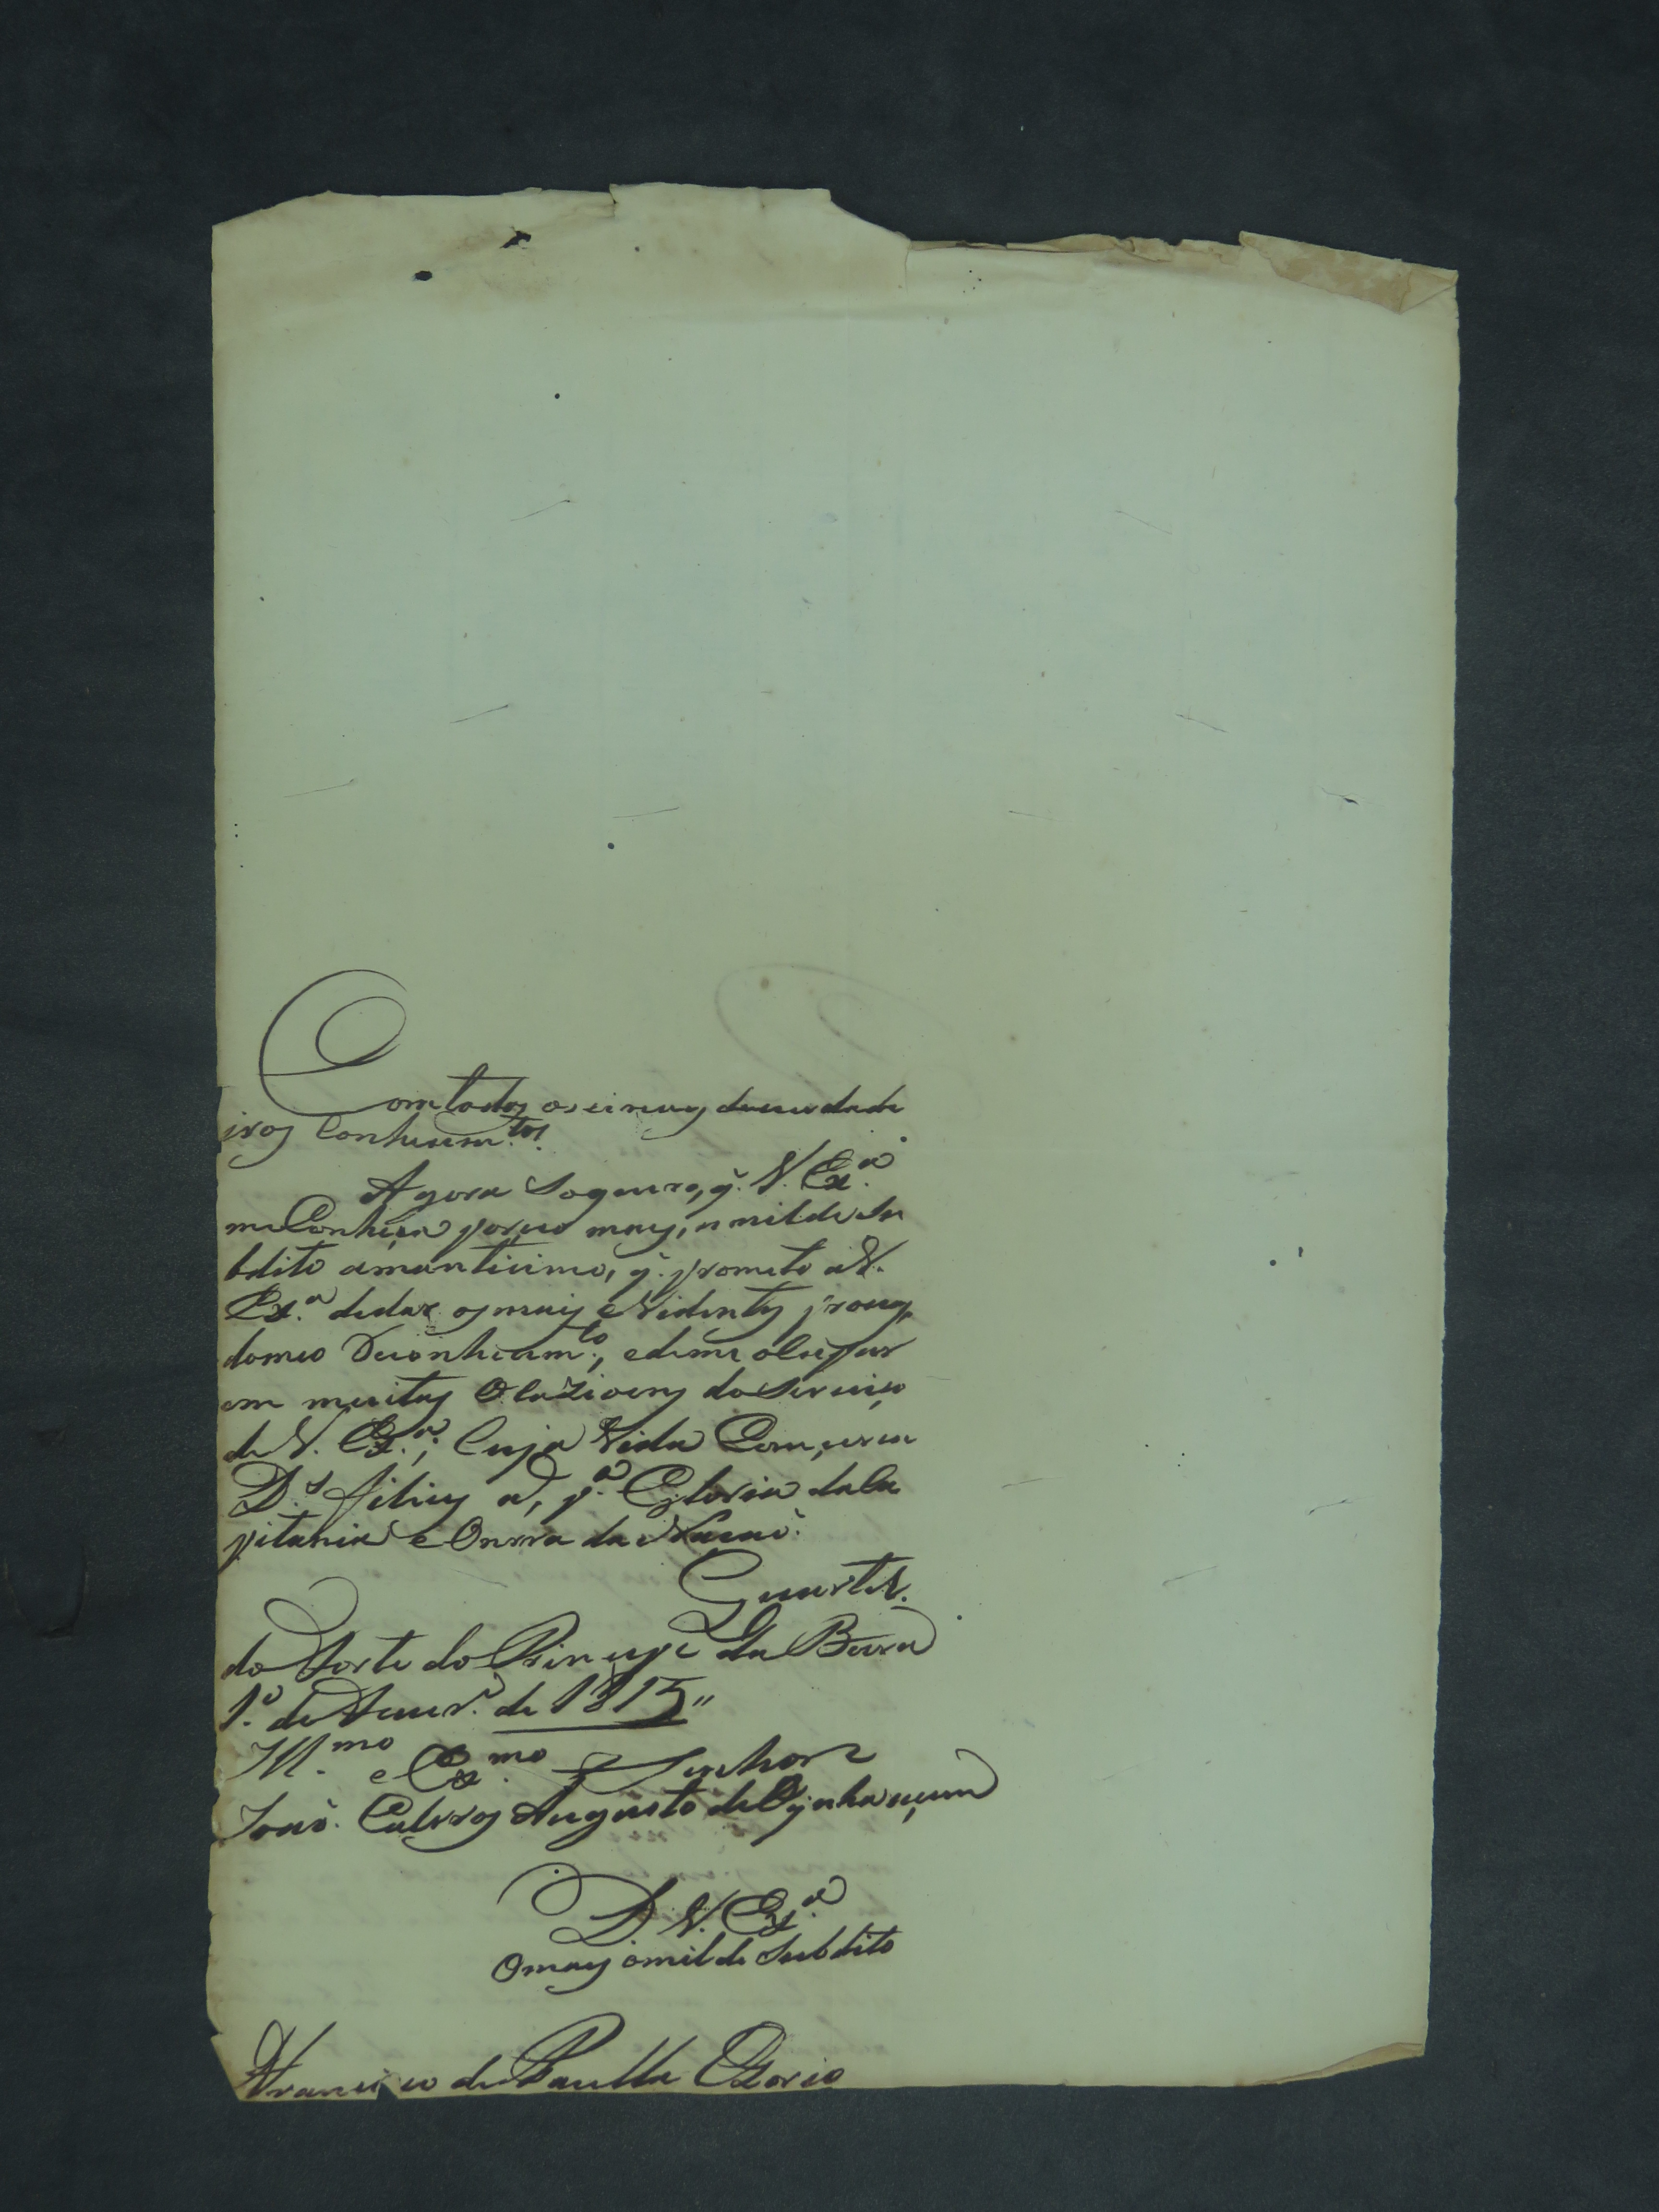 Com todos os einays deverdade
iros Conhecim.tos
Agora Sogeuro, q̃. V. Ex.ª
me Conheça por seo mays, umilde Su
bdito amantiçimo, q̃. prometo a V.
Ex.ª dedar os mais eVidentes provas
domeo Reconhecim.to, edeme olcupar
em muitas Oclazioens do Serviço
de V. Ex.ª; Cuja Vida Comçerve
D.s felices a, p.ª Gloria daCa
pitania e Onrra da Naçaõ.
Quartel.
do Forte do Principe da Beira
1.º de Fever.º de 1815"
Ill.mo e Ex.mo Senhor
Joaõ Calros Augusto de Oynhauçem
D. V. Ex.ª
Omays omilde Subdito
Françisco de Paulla Ozorio